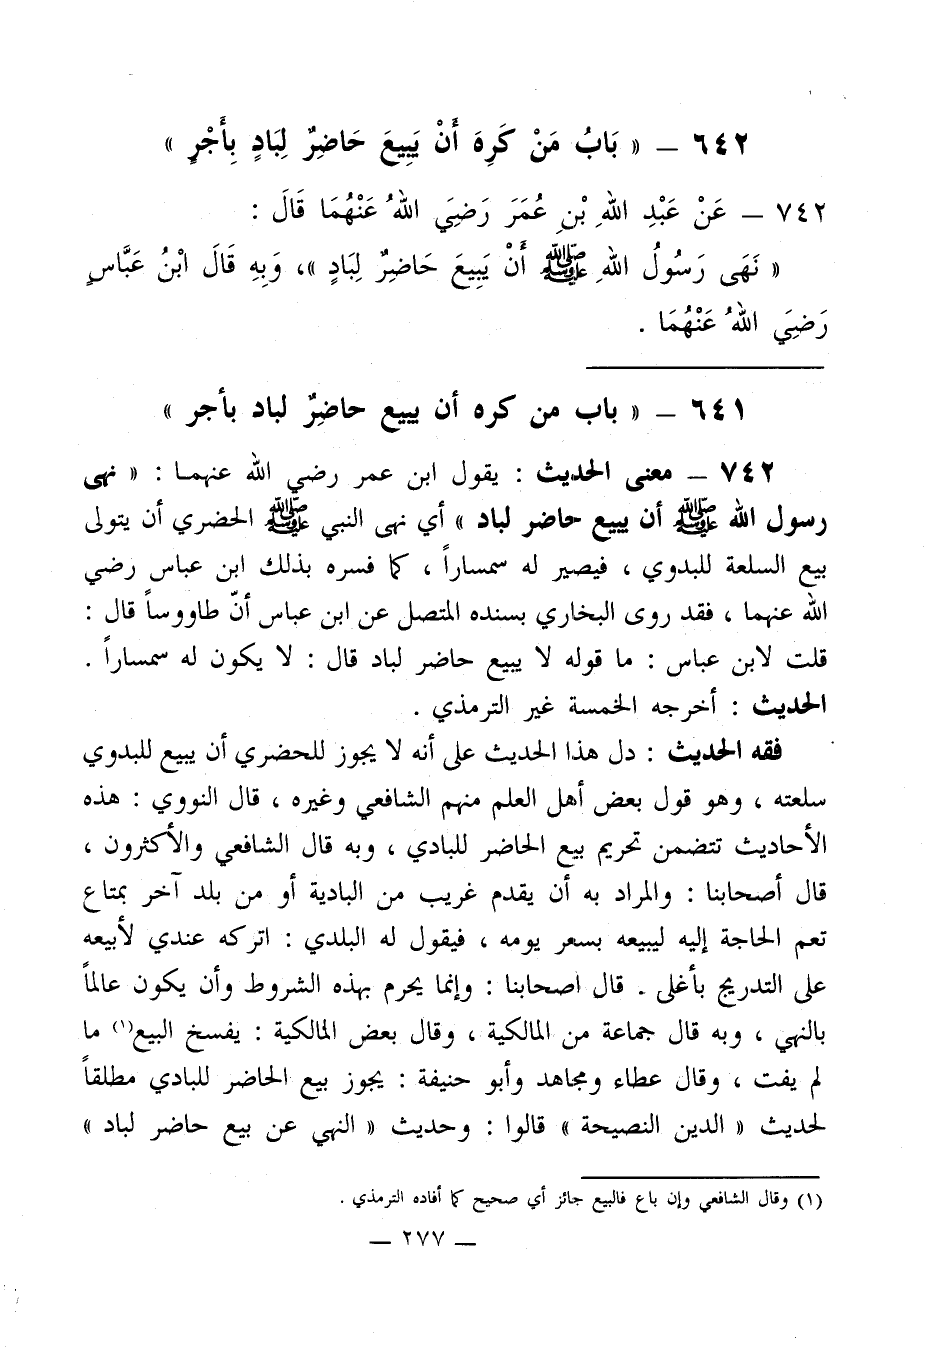 ٦٤٢ – « بَابُ مَنْ كَرِهَ أَنْ يَبِيعَ حَاضِرٌ لِبَادٍ بِأَجْرٍ »
٧٤٢ – عَنْ عَبْدِ اللهِ بْنِ عُمَرَ رَضِيَ اللهُ عَنْهُمَا قَالَ :
« نَهَى رَسُولُ اللهِ ﷺ أَنْ يَبِيعَ حَاضِرٌ لِبَادٍ »، وَبِهِ قَالَ ابْنُ عَبَّاسٍ
رَضِيَ اللهُ عَنْهُمَا .
٦٤١ – « باب من كره أن يبيع حاضِرٌ لباد بأجر »
٧٤٢ – معنى الحديث : يقول ابن عمر رضي الله عنهما : « نهى
رسول الله ﷺ أن يبيع حاضر لباد » أي نهى النبي ﷺ الحضري أن يتولى
بيع السلعة للبدوي ، فيصير له سمساراً ، كما فسره بذلك ابن عباس رضي
الله عنهما ، فقد روى البخاري بسنده المتصل عن ابن عباس أنّ طاووساً قال :
قلت لابن عباس : ما قوله لا يبيع حاضر لباد قال : لا يكون له سمساراً .
الحديث : أخرجه الخمسة غير الترمذي .
فقه الحديث : دل هذا الحديث على أنه لا يجوز للحضري أن يبيع للبدوي
سلعته ، وهو قول بعض أهل العلم منهم الشافعي وغيره ، قال النووي : هذه
الأحاديث تتضمن تحريم بيع الحاضر للبادي ، وبه قال الشافعي والأكثرون ،
قال أصحابنا : والمراد به أن يقدم غريب من البادية أو من بلد آخر بمتاع
تعم الحاجة إليه ليبيعه بسعر يومه ، فيقول له البلدي : اتركه عندي لأبيعه
على التدريج بأغلى . قال اصحابنا : وإنما يحرم بهذه الشروط وأن يكون عالماً
بالنهي ، وبه قال جماعة من المالكية ، وقال بعض المالكية : يفسخ البيع(١) ما
لم يفت ، وقال عطاء ومجاهد وأبو حنيفة : يجوز بيع الحاضر للبادي مطلقاً
لحديث « الدين النصيحة » قالوا : وحديث « النهي عن بيع حاضر لباد »
(١) وقال الشافعي وإن باع فالبيع جائز أي صحيح كما أفاده الترمذي .
– ٢٧٧ –